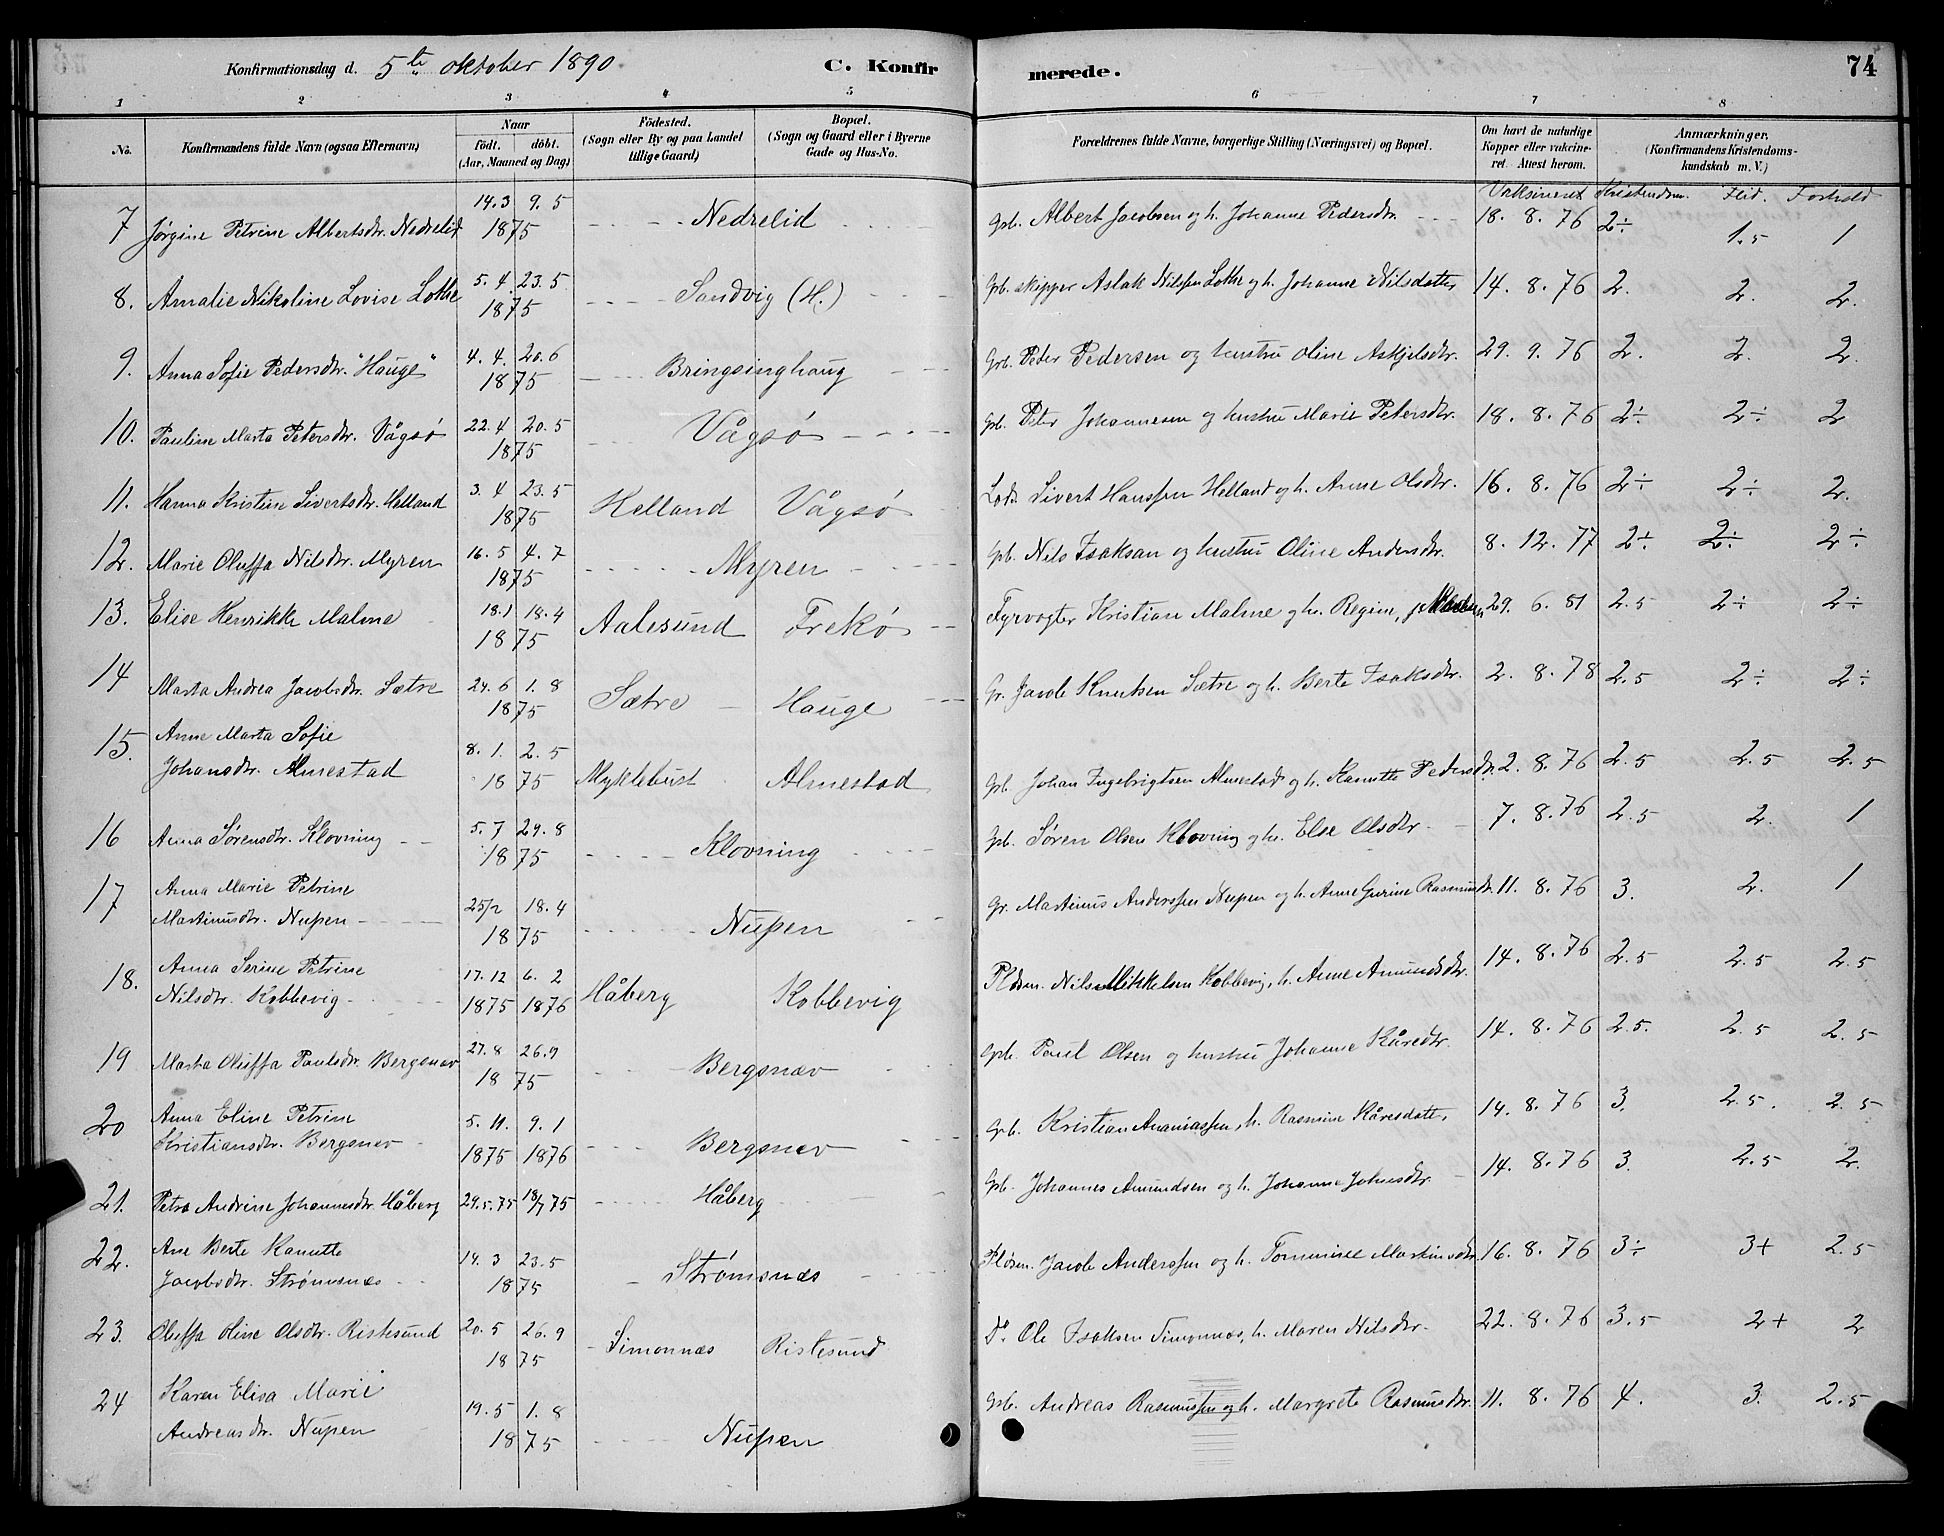 Konfirmationsdag d. 5te oktober 1890 C. Konfirmerede. 74
1 2 3 4 5 6 7 8
No. Konfirmandens fulde Navn (ogsaa Efternavn) Naar födt. döbt. (Aar, Maaned og Dag) Födested. (Sogn eller By og paa Landet tillige Gaard) Bopæl. (Sogn og Gaard eller i Byerne Gade og Hus-No. Forældrenes fulde Navne, borgerlige Stilling (Næringsvei) og Bopæl. Om havt de naturlige Kopper eller vakcineret. Attest herom. Anmærkninger. (Konfirmandens Kristendomskundskab m. V.)
Vaksineret Kristendom. Flid. Forhold
7 Jørgine Petrine Albertsdtr. Nedrelid 14.3 9.5 1875 Nedrelid Grb. Albert Jacobsen og h. Johanne Pedersdtr. 18. 8. 76 2÷ 1.5 1
8. Amalie Nikoline Lovise Lokke 5.4 23.5 1875 Sandvig (H.) Grb. skipper Aslak Nilssen Lokke og h. Johanne Nilsdatter 14. 8. 76 2. 2. 2.
9. Anna Sofie Pedersdtr. "Hauge" 4.4. 20.6 1875 Bringsinghaug Grb. Peder Pedersen og hustru Oline Askjelsdtr. 29. 9. 76 2. 2. 2.
10. Pauline Marta Petersdtr. Vågsø 22.4 20.5 1875 Vågsø Gb. Peter Johannesen og hustru Marie Petersdtr. 18. 8. 76 2÷ 2÷ 2
11. Hanna Kristine Sivertsdtr. Helland 3.4 23.5 1875 Helland Vågsø Lods Sivert Hanssen Helland og h. Anne Olsdtr. 16. 8. 76 2÷ 2÷ 2.
12. Marie Oluffa Nilsdtr. Myren 16.5 4.7 1875 Myren Gb. Nils Isaksen og hustru Oline Andersdtr. 8. 12. 77 2÷ 2÷ 2÷
13. Elise Henrikke Malme 18.1 18.4 1875 Aalesund Frekø Fyrvogter Kristian Malme og h. Regine, f. 29. 6. 81 2.5 2÷ 2÷
14 Marta Andrea Jacobsdtr. Sætre 24.6 1.8 1875 Sætre Hauge Gr. Jacob Knutsen Sætre og h. Berte Isaksdtr. 2. 8. 78 2.5 2÷ 2÷
15. Anne Marta Sofie
Johansdtr. Almestad 8.1. 2.5 1875 Myklebust Almestad Gb. Johan Ingebrigtsen Almestad og h. Kanutte Pedersdtr. 2. 8. 76 2.5 2.5 2.5
16 Anna Sørensdtr. Klovning 5.7 29.8 1875 Klovning Gb. Søren Olsen Klovning og h. Else Olsdtr. 7. 8. 76 2.5 2. 1
17 Anna Marie Petrine
Martinusdtr. Nupen 25/2 18.4 1875 Nupen Gr. Martinus Anderssen Nupen og h. Anne Gurine Rasmusdtr. 11. 8. 76 3. 2. 1
18. Anna Serine Petrine
Nilsdtr. Kobbevig 17.12 6.2 1875 1876 Håberg Kobbevig Pldsm. Nils Mikkelsen Kobbevig, h. Anne Amundsdtr. 14. 8. 76 2.5 2.5 2.5
19 Marta Oluffa Paulsdtr. Bergsnæv 27.8 26.9 1875 Bergsnæv Gb. Paul Olsen og hustru Johanne Kåresdtr. 14. 8. 76 2.5. 2.5 2.5
20 Anna Eline Petrine
Kristiansdtr. Bergsnev 5.11. 9.1 1875 1876 Bergsnev Gb. Kristian Ananiassen, h. Rasmine Kåresdatter 14. 8. 76 3. 2.5. 2.5
21. Petra Andrine Johannesdtr. Håberg 29.5.75 18/7 75 Håberg Gb. Johannes Amundsen og h. Johanne Johnsdtr. 14. 8. 76 3. 2.5 2.
22. Ane Berte Kanutte
Jacobsdtr. Strømsnæs 14.3 23.5 1875 Strømsnæs Pldsm. Jacob Anderssen og h. Tomine Martinusdtr. 16. 8. 76 3÷ 3+ 2.5
23. Oluffa Oline Olsdtr. Ristesund 20.5 26.9 1875 Simonnæs Ristesund Do. Ole Isaksen Simonnæs, h. Maren Nilsdtr. 22. 8. 76 3.5 2+ 2
24 Karen Elisa Marie
Andreasdtr. Nupen 19.5 1.8 1875 Nupen Gb. Andreas Rasmussen og h. Margrete Rasmusdtr. 11. 8. 76 4. 3. 2.5